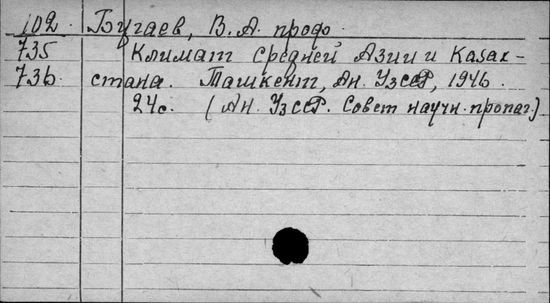 102. Бугаев, В. А. профо
735 Климат Средней Азии и Казах-
736. стана. Ташкент, Ан. УзССР, 1946.
24с. (Ан. УзССР. Совет научн. пропаг.)